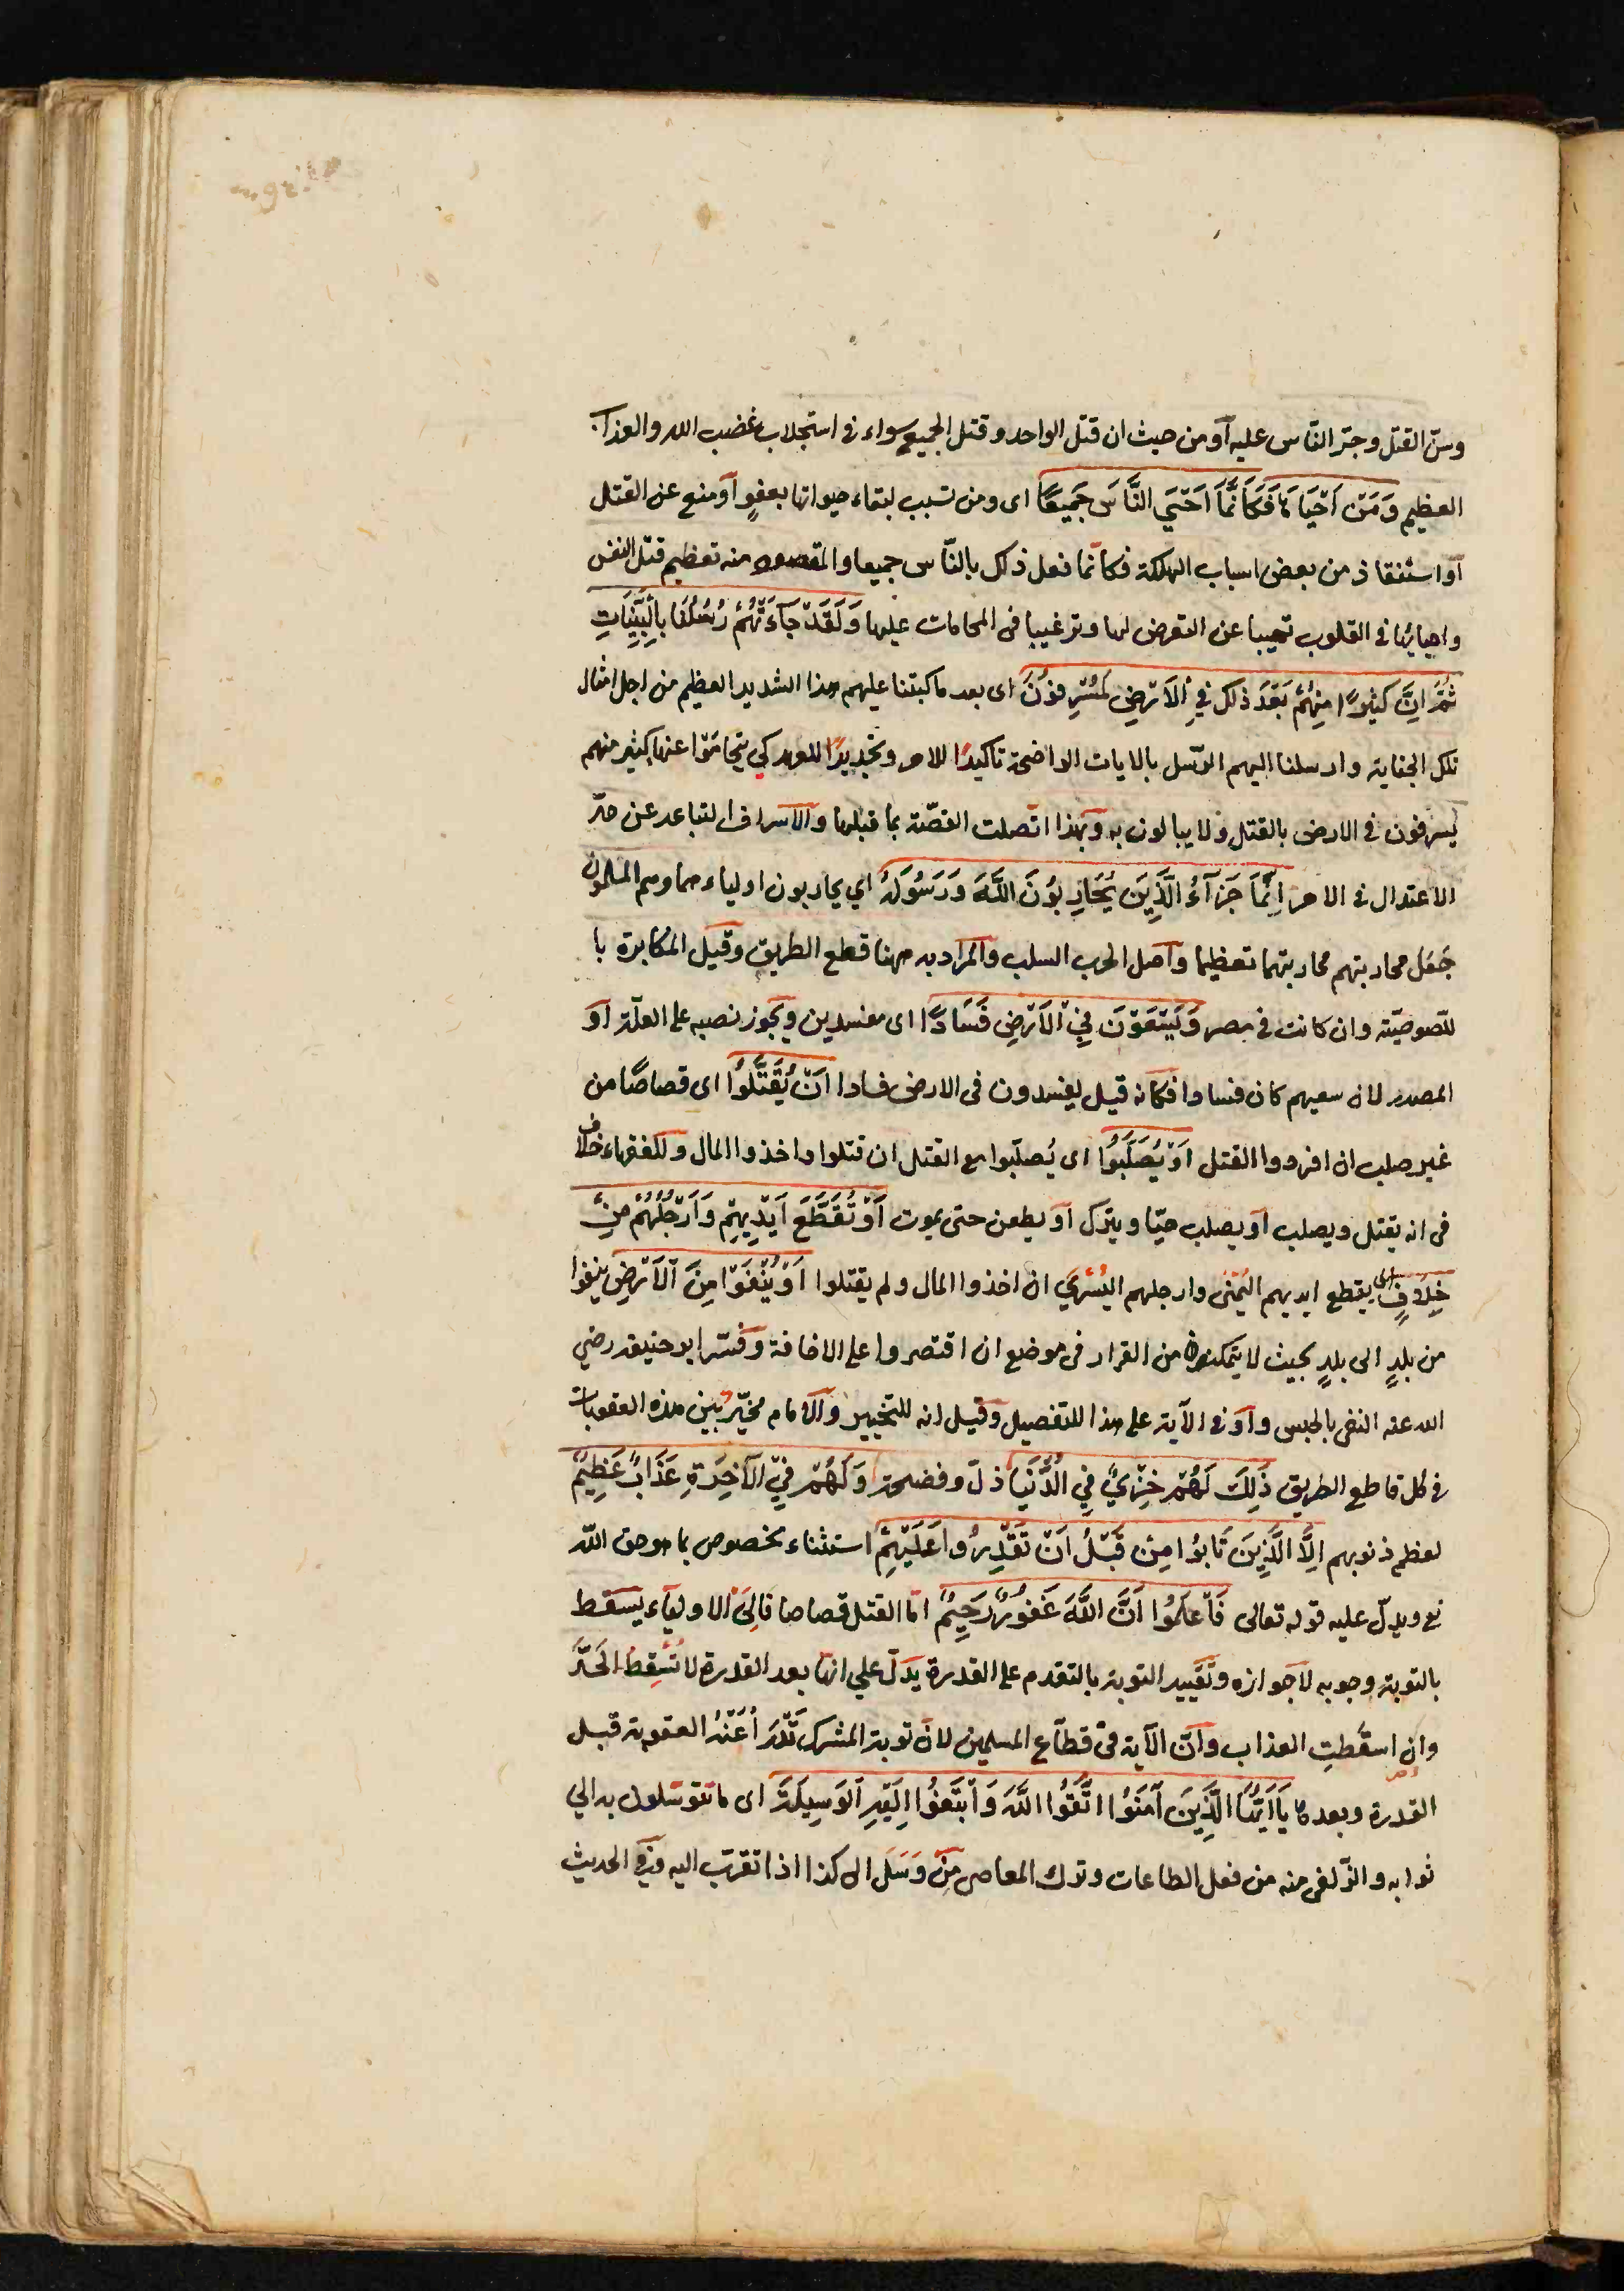 وسنّ القتل وجرّ النّاس عليه أو من حيث ان قتل الواحد وقتل الجميع سواء فى استجلاب غضب الله والعذاب
العظيم وَمَنْ اَحْيَاهَا فَكَاَنَّمَا اَحْيَي النَّاسَ جَمِيعًا اى ومن تسبب لبقاء حيواتها بعفوٍ أو منع عن القتل
أو استنقاذ من بعض اسباب الهلكة فكانّما فعل ذلك بالنّاس جميعا والمقصود منه تعظيم قتل النفس
واحيائها فى القلوب ترهيبا عن التعرض لها وترغيبا فى المحامات عليها وَلَقَدْ جَآءَتْهُمْ رُسُلُنَا بِالْبَيِّنَاتِ
ثُمَّ اِنَّ كَثِيرًا مِنْهُمْ بَعْدَ ذلِكَ فِي الْاَرْضِ لَمُسْرِفُونَ اى بعد ما كتبنا عليهم هذا الشديد العظيم من اجل امثال
تلك الجناية وارسلنا اليهم الرّسل بالايات الواضحة تاكيدًا للامر وتجديدًا للعهد كي يتحامَوْا عنها كثير منهم
يسرفون فى الارض بالقتل ولا يبالون به وبهذا اتّصلت القصّة بما قبلها والاسراف التباعد عن حدّ
الاعتدال فى الامر اِنَّمَا جَزَآءُ الَّذِينَ يُحَارِبُونَ اللّٰهَ وَرَسُولَهُ اي يحاربون اولياءهما وهم المسلمون
جَعَل محاربتهم محاربتهما تعظيما وأصل الحرب السلب والمراد به ههنا قطع الطريق وقيل المكابرة با
للّصوصيّة وان كانت فى مصر وَيَسْعَوْنَ فِي الْاَرْضِ فَسَادًا اى مفسدين ويجوز نصبه على العلّة أو
المصدر لان سعيهم كان فسادا فكانه قيل يفسدون فى الارض فسادا اَنْ يُقَتَّلُوا اى قصاصًا من
غير صلب ان افردوا القتل اَوْ يُصَلَّبُوا اى يُصلّبوا مع القتل ان قتلوا واخذوا المال وللفقهاء خلاف
فى انه يقتل ويصلب أو يصلب حيّا ويترك أو يطعن حتى يموت اَوْ تُقَطَّعَ اَيْدِيهِمْ وَاَرْجُلُهُمْ مِنْ
خِلَافٍ اى يقطع ايديهم اليُمْنَى وارجلهم اليُسْرَي ان اخذوا المال ولم يقتلوا اَوْ يُنْفَوْا مِنَ الْاَرْضِ ينفوا
من بلدٍ الى بلدٍ بحيث لا يتمكنون من القرار فى موضع ان اقتصروا على الاخافة وفسّر ابو حنيفة رضي
الله عنه النفى بالحبس وأو فى الآية على هذا للتفصيل وقيل انه للتخيير والامام مخيّر بين هذه العقوبات
فى كل قاطع الطريق ذٰلِكَ لَهُمْ خِزْيٌ فِي الدُّنْيَا ذلّ وفضحة وَلَهُمْ فِي الْآخِرَةِ عَذَابٌ عَظِيمٌ
لعظم ذنوبهم اِلَّا الَّذِينَ تَابُوا مِنْ قَبْلُ اَنْ تَقْدِرُوا عَلَيْهِمْ استثناء مخصوص بما هو حق اللّه
تع ويدلّ عليه قوله تعالى فَاعْلَمُوا اَنَّ اللّٰهَ غَفُورٌ رَحِيمٌ امّا القتل قصاصا فالى الاولياء يسقط
بالتوبة وجوبه لا جوازه وتقييد التوبة بالتقدم على القدرة يدلّ علي انها بعد القدرة لا تُسقِط الحَدَّ
وان اسقطتِ العذاب وانّ الآية فى قطّاع المسلمين لان توبة المشرك تَدْرَأُ عَنْهُ العقوبة قبل
القدرة وبعدها يَا اَيُّهَا الَّذِينَ آمَنُوا اتَّقُوا اللّٰهَ وَابْتَغُوا اِلَيْهِ الْوَسِيلَةَ اى ما تتوسّلون به الي
ثوابه والزّلفى منه من فعل الطاعات وترك المعاصى مِنْ وَسَلَ الى كذا اذا تقرّب اليه وفى الحديث